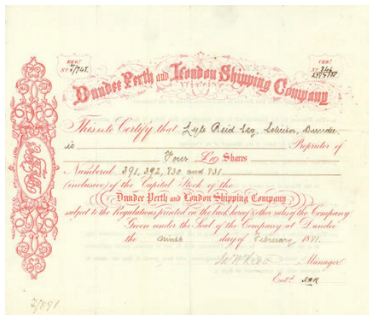 CERT
No
Dundee Perth and London Shipping Company
This is to Certify that Lyle Reid Esq. Solicitor, Dundee
is Proprietor of
Four £10 Shares
Numbered 391, 392, 730 and 731
(inclusive) of the Capital Stock of the
Dundee Perth and London Shipping Company
subject to the Regulations printed on the back hereof & other rules of the Company
Given under the Seal of the Company at Dundee
the ninth day of February 18
Manager
Entd.